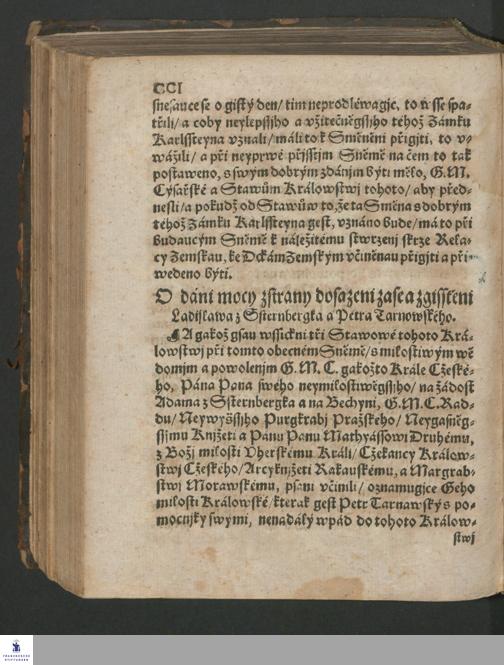 CCI
snesauce se o gistý den/ tim neprodléwagjc, to wsse spa-
třili/ a coby neylepssjho a vžitečněgssjho téhož Zámku
Karlssteyna vznali/ máli to k Směněni přigjti, to v-
wážili/ a při neyprwé přjsstjm Sněmě na čem to tak
postaweno, s swým dobrým zdánjm býti mělo, G. M.
Cýsařské a Stawům Králowstwj tohoto/ aby před-
nesli/ a pokudž od Stawůw to, že ta Směna s dobrým
téhož Zámku Karlssteyna gest, vznáno bude/ má to při
budaucým Sněmě k náležitému stwrzenj skrze Rela-
cy Zemskau, ke Dckám Zemským včiněnau přigjti a při-
wedeno býti.
O dáni mocy zstrany dosazeni zase a zgisstěni
Ladislawa z Ssternbergka a Petra Tarnowského.
A gakož gsau wssickni tři Stawowé tohoto Krá-
lowstwj při tomto obecném Sněmě/ s milostiwým wě
domjm a powolenjm G. M. C. gakožto Krále Cžeské-
ho, Pána Pana swého neymilostiwěgssjho/ na žádost
Adama z Ssternbergka a na Bechyni, G. M. C. Rad-
du/ Neywyšssjho Purgkrabj Pražského/ Neygasněg-
ssjmu Knjžeti a Panu Panu Mathyássowi Druhému,
z Božj milosti Vherskému Králi/ Cžekancy Králow-
stwj Cžeského/ Arcyknjžeti Rakauskému, a Margrab-
stwi Morawskému, psani včinili/ oznamugjce Geho
milosti Králowské/ kterak gest Petr Tarnawský s po-
mocnjky swymi, nenadálý wpád do tohoto Králow-
stwj
FRANCKESCHE
STIFTUNGEN